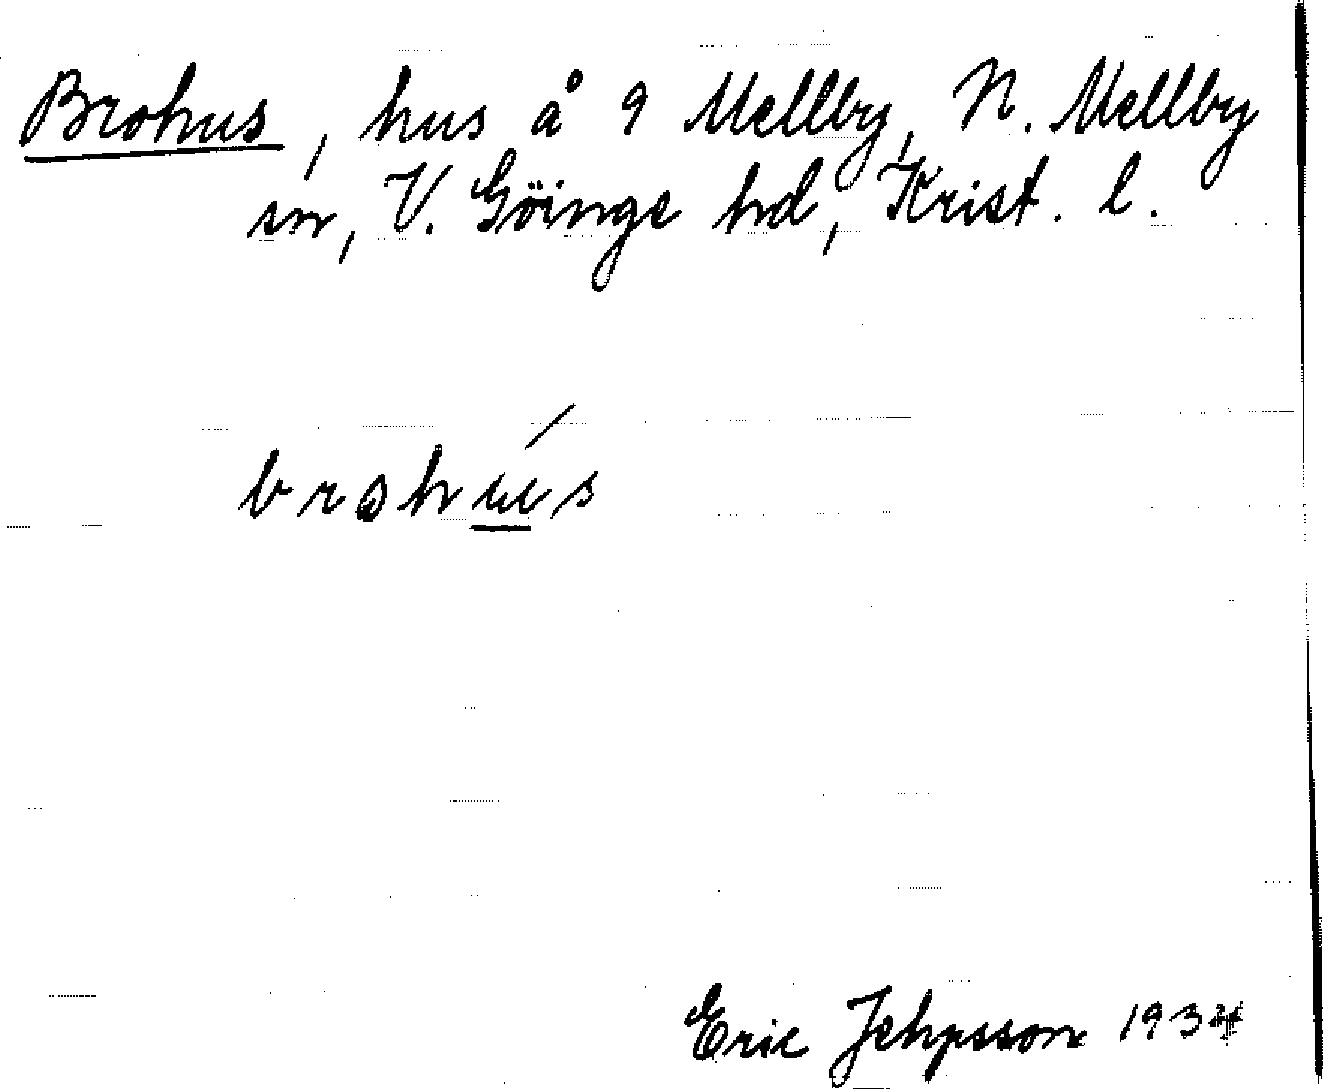 Brohus, hus å 9 Mellby, N. Mellby
sn, V. Göinge hd, Krist. l.
brohú̲s
Eric Jehpsson 1934